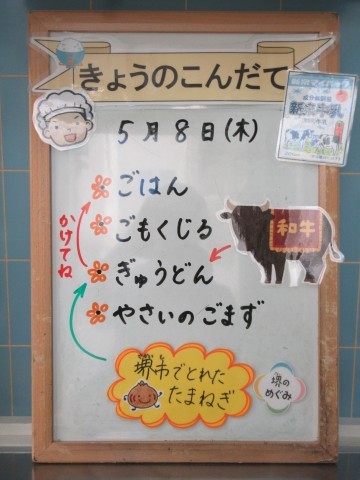 きょうのこんだて
5月8日(木)
ごはん
ごもくじる
ぎゅうどん
やさいのごまず
かけてね
和牛
堺市でとれた
たまねぎ
堺の
めぐみ